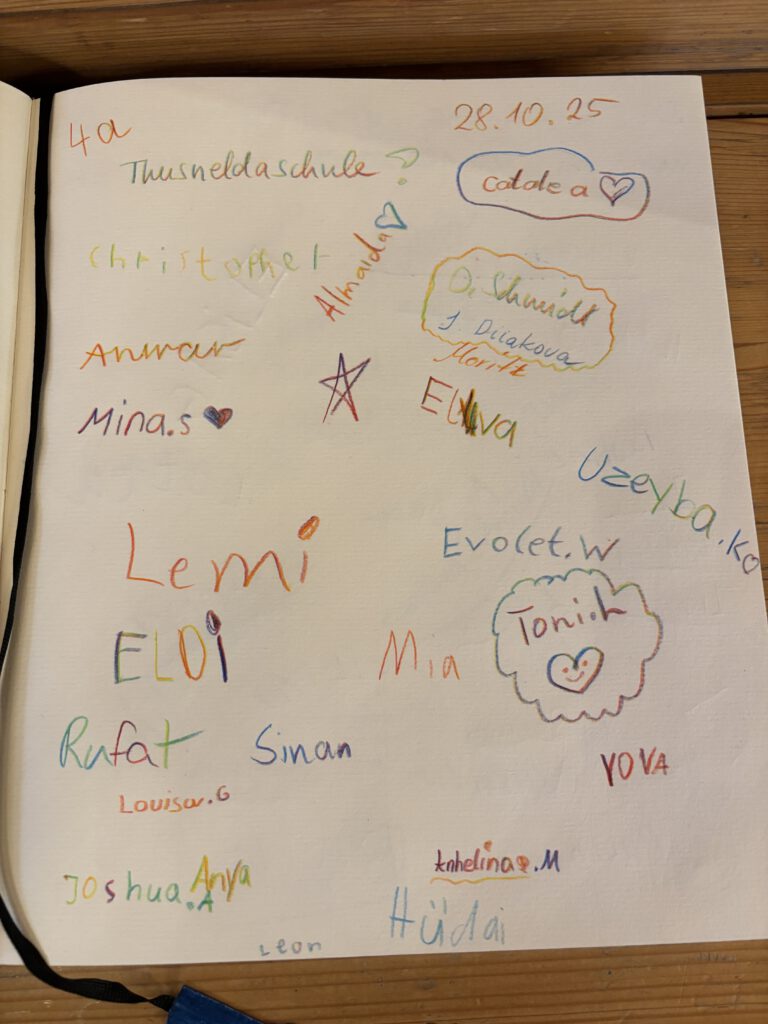 4a
28.10.25
Thusneldaschule
catalea
Almaida
Christopher
O. Schmidt
J. Diiakova
Moritz
Anwar
Mina.s
Uzeyba.Ko
Lemi
Evolet.W
Tonich
ELDi
Mia
Rufat
Sinan
YOVA
Louisa.G
Anhelina.M
Joshua.A
Anya
Hüdai
Leon